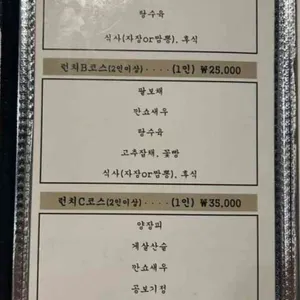 탕수육
식사(자장or짬뽕), 후식
런치B코스(2인이상)····(1인) ₩25,000
팔보채
만쇼새우
탕수육
고추잡채, 꽃빵
식사(자장or짬뽕), 후식
런치C코스(2인이상)····(1인) ₩35,000
양장피
게살산슬
만쇼새우
공보기정